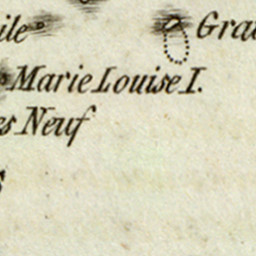 ile Gra
Marie Louise I.
es Neuf
s